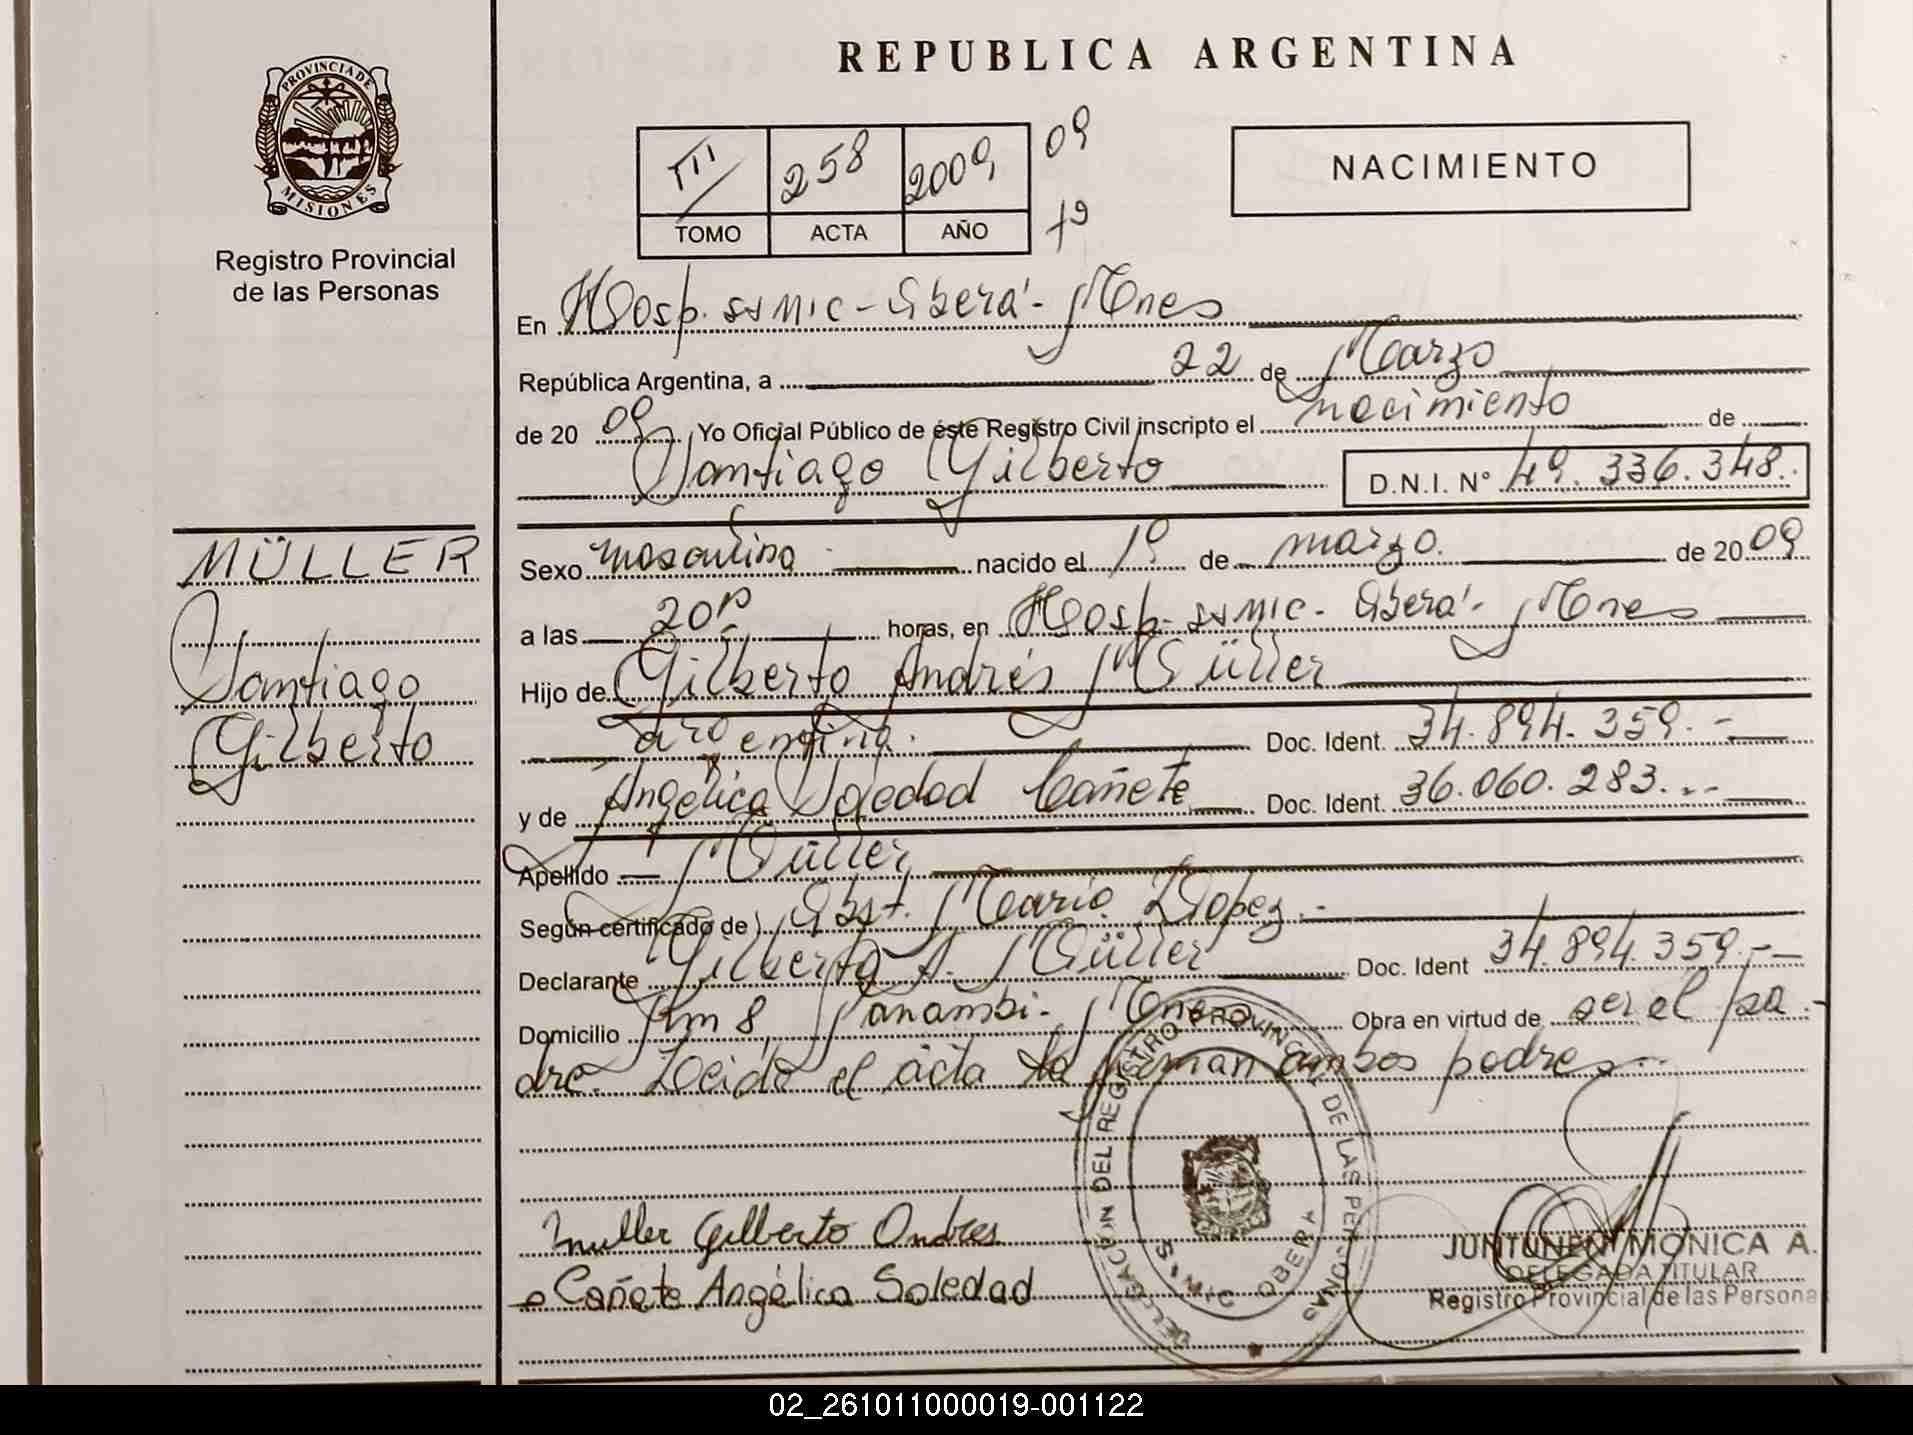 REPUBLICA ARGENTINA
PROVINCIA DE
MISIONES
Registro Provincial
de las Personas
III 258 2009 09
TOMO ACTA AÑO
NACIMIENTO
En Hosp. SAMIC - Oberá - Mnes
República Argentina, a 22 de Marzo
de 20 09 Yo Oficial Público de éste Registro Civil inscripto el nacimiento de
Santiago Gilberto D.N.I. N° 49.336.348.
MÜLLER
Santiago
Gilberto
Sexo masculino nacido el 1º de marzo. de 20 09
a las 20 horas, en Hosp. SAMIC - Oberá - Mnes
Hijo de Gilberto Andrés Müller
argentina. Doc. Ident. 34.894.359.-
y de Angélica Soledad Cañete Doc. Ident. 36.060.283.-
Apellido Müller
Según certificado de Obst. Mario Lopez.-
Declarante Gilberto A. Müller Doc. Ident 34.894.359.-
Domicilio Km 8, Panambi - Mnes Obra en virtud de ser el pa-
dre. Leida el acta la firman ambos padres.-
DELEGACION DEL REGISTRO PROVINCIAL DE LAS PERSONAS
OBERA
Muller Gilberto Andres
Cañete Angélica Soledad
JUNTUNEN MONICA A.
DELEGADA TITULAR
Registro Provincial de las Persona
02_261011000019-001122